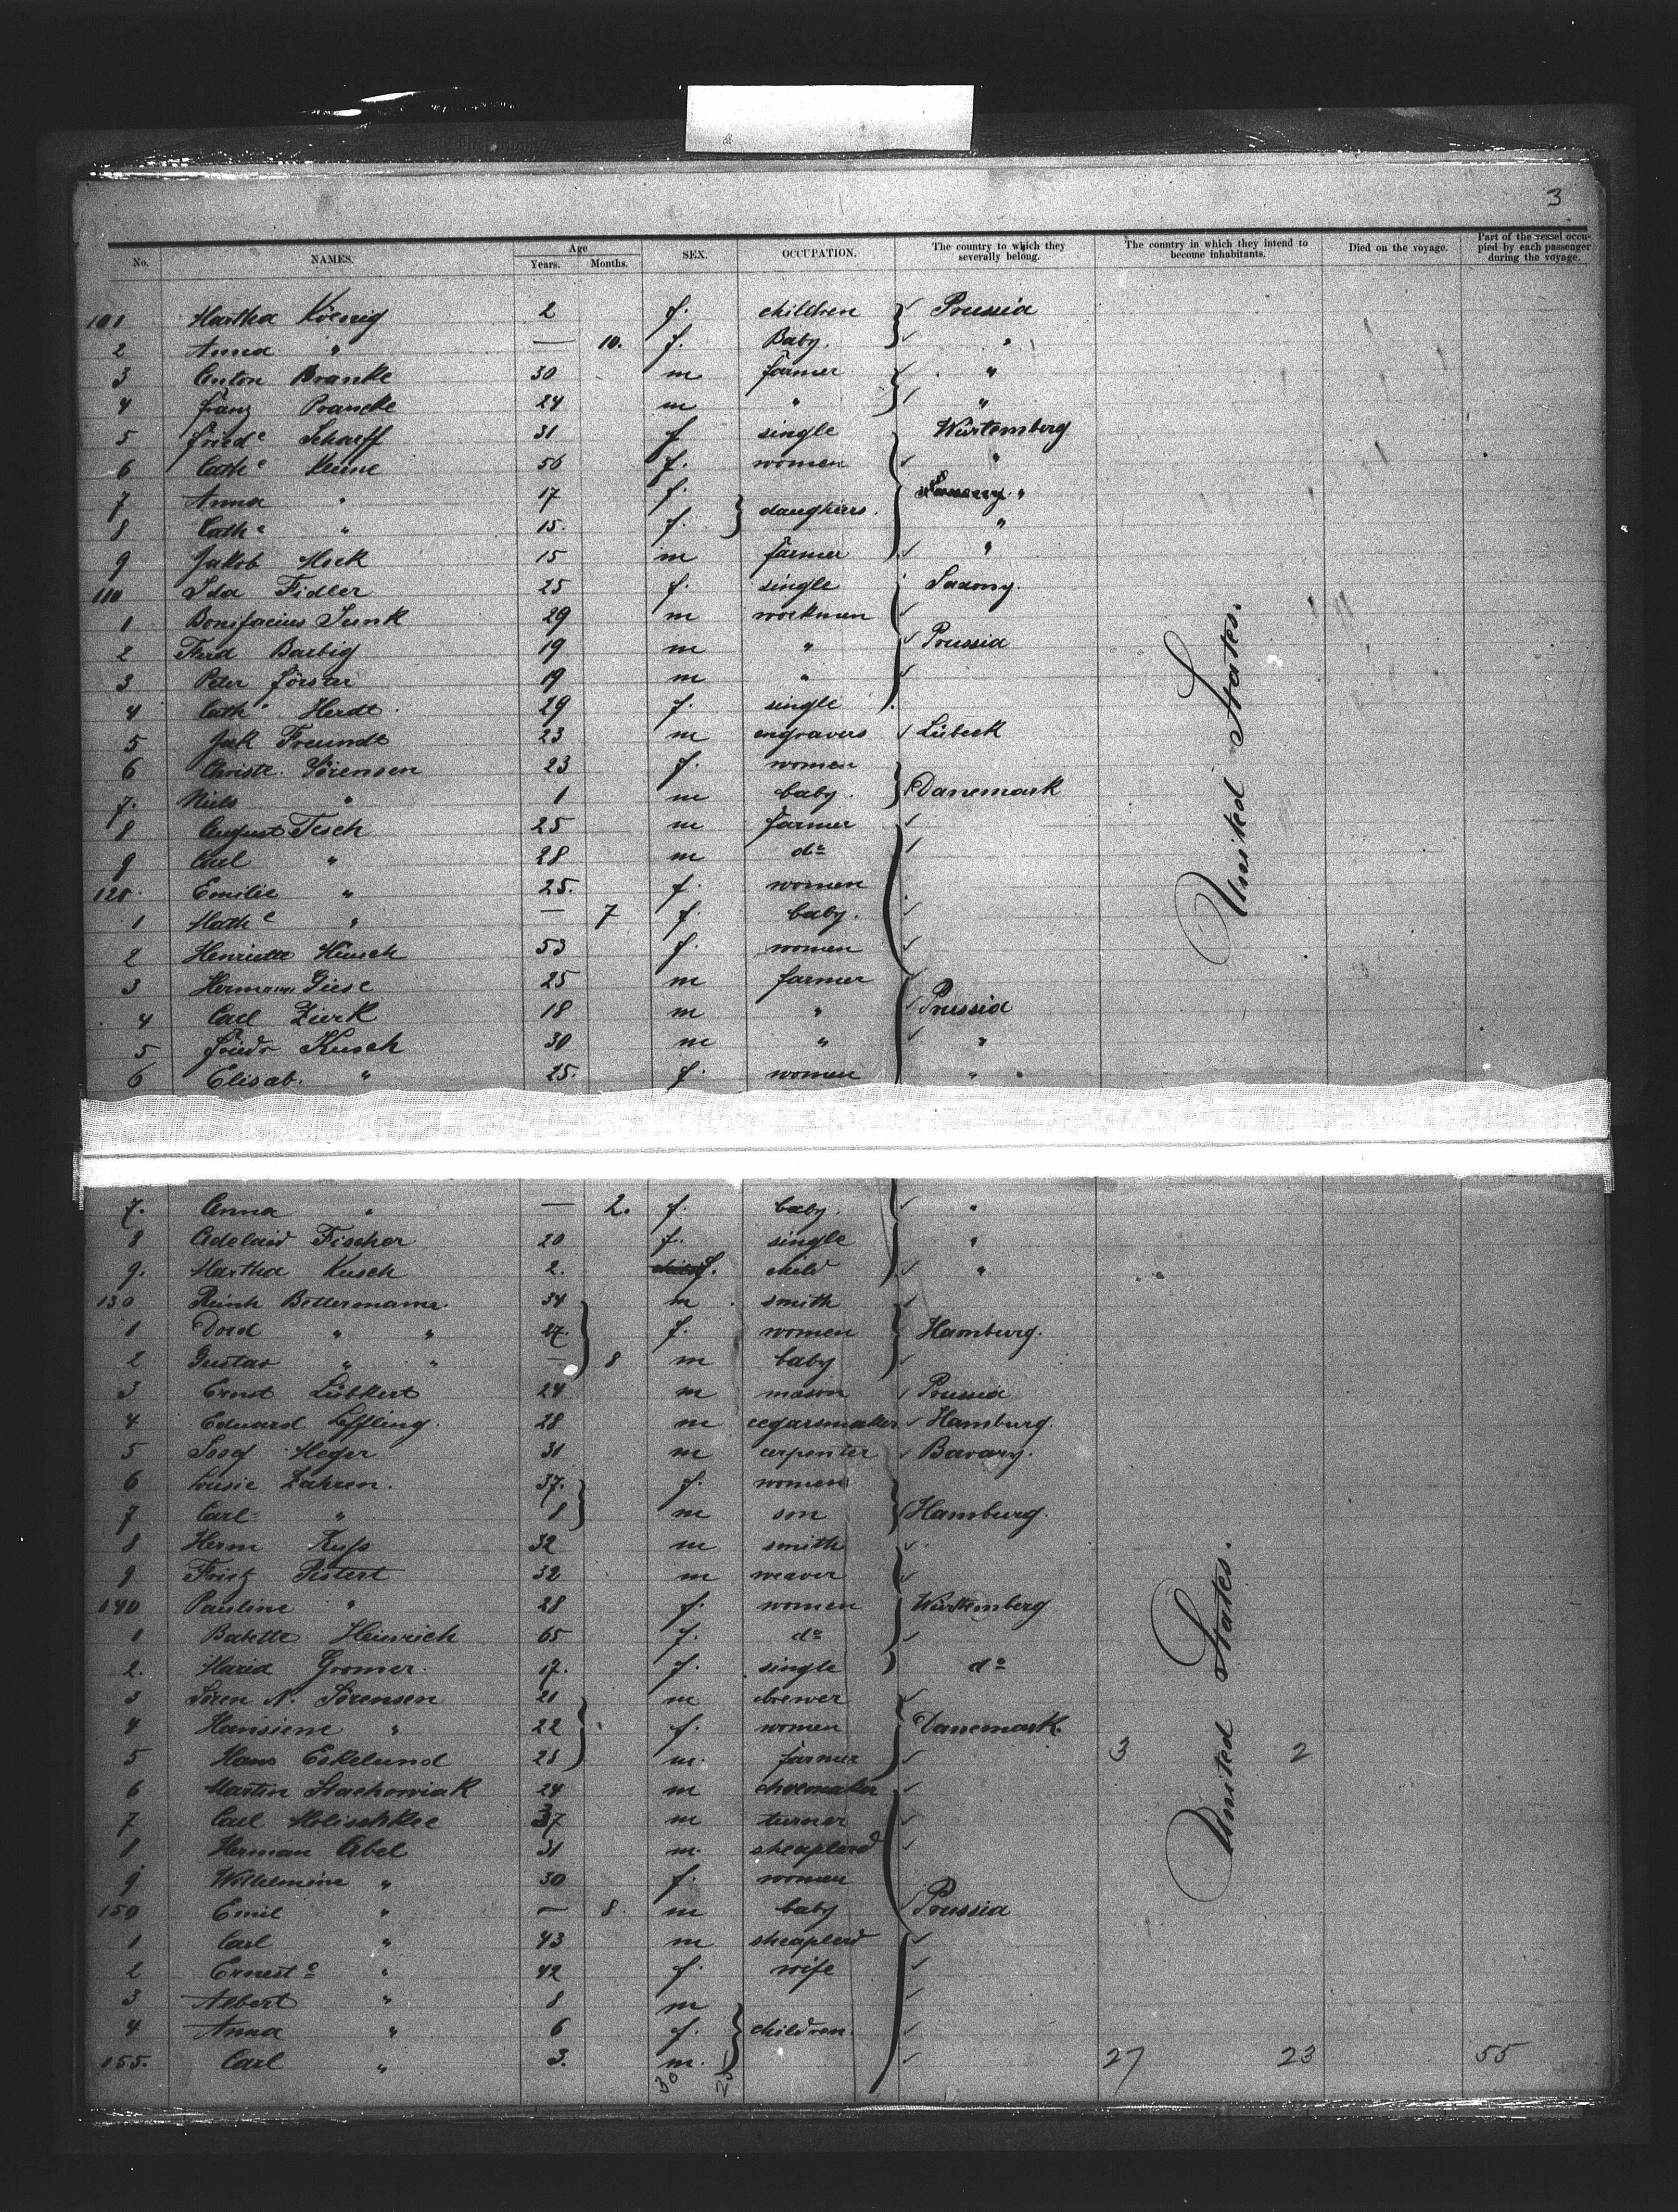 3
No. NAMES. Age Years. Months. SEX. OCCUPATION. The country to which they severally belong. The country in which they intend to become inhabitants. Died on the voyage. Part of the vessel occupied by each passenger during the voyage.
101 Martha Koenig 2 f. children Prussia
2 Anna " — 10. f. Baby. "
3 Anton Branke 30 m farmer "
4 Franz Prancke 24 m " "
5 Friedᵉ Scharff 31 f single Würtemberg
6 Cathᵉ Keine 56 f. women "
7 Anna " 17 f. daughters. "
8 Cathᵉ " 15. f. "
9 Jakob Hock 15 m farmer "
110 Ida Fidler 25 f. single Saxony.
1 Bonifacius Junk 29 m workmen
2 Ferd Barbig 19 m " Prussia
3 Peter Förster 19 m "
4 Cathᵉ Herdt 29 f. single
5 Jak Freundt 23 m engravers Lübeck
6 Christe. Sörensen 23 f. women
7. Niels " 1 m baby. Danemark
8 August Tesch 25 m farmer
9 Carl " 28 m do
120. Emilie " 25. f. women
1 Mathᵉ " — 7 f. baby.
2 Henriette Hensch 53 f. women
3 Hermann Giese 25 m farmer
4 Carl Zierk 18 m " Prussia
5 Friedr Kusch 30 m " "
6 Elisab. " 25. f. women "
7. Anna " — 2. f. baby. "
8 Adelaid Fischer 20 f. single "
9. Martha Kusch 2. f. child "
130 Reinh Bettermann. 34 m smith
1 Dord " " 27. f. women Hamburg.
2 Gustav " " — 8 m baby
3 Ernst Lübkert 24 m mason Prussia
4 Eduard Leffling. 28 m cegarsmaker Hamburg.
5 Josef Heger 31 m carpenter Bavary.
6 Louise Zahren. 37. f. women
7 Carl " 8 m son Hamburg.
8 Herm Kuss 32 m smith
9 Fritz Pistert 32 m weaver
140 Pauline " 28 f. women Würtemberg
1 Babette Heinrich 65 f. do
2. Maria Gromer. 17. f. single do
3 Sören N. Sörensen 21 m brewer
4 Hansiene " 22 f. women Danemark.
5 Hans Eskelund 28 m. farmer 3 2
6 Martin Stachowiak 24 m choemaker
7 Carl Molischkee 37 m turner
8 Herman Abel 31 m. sheaplerd
9 Wilhelmine " 30 f. women
150 Emil " — 8. m baby Prussia
1 Carl " 43 m sheaplerd
2 Ernestᵉ " 42 f. wife
3 Albert " 8 m
4 Anna " 6 f. children.
155. Carl " 3. m. 27 23 55
30 25
United States.
United States.